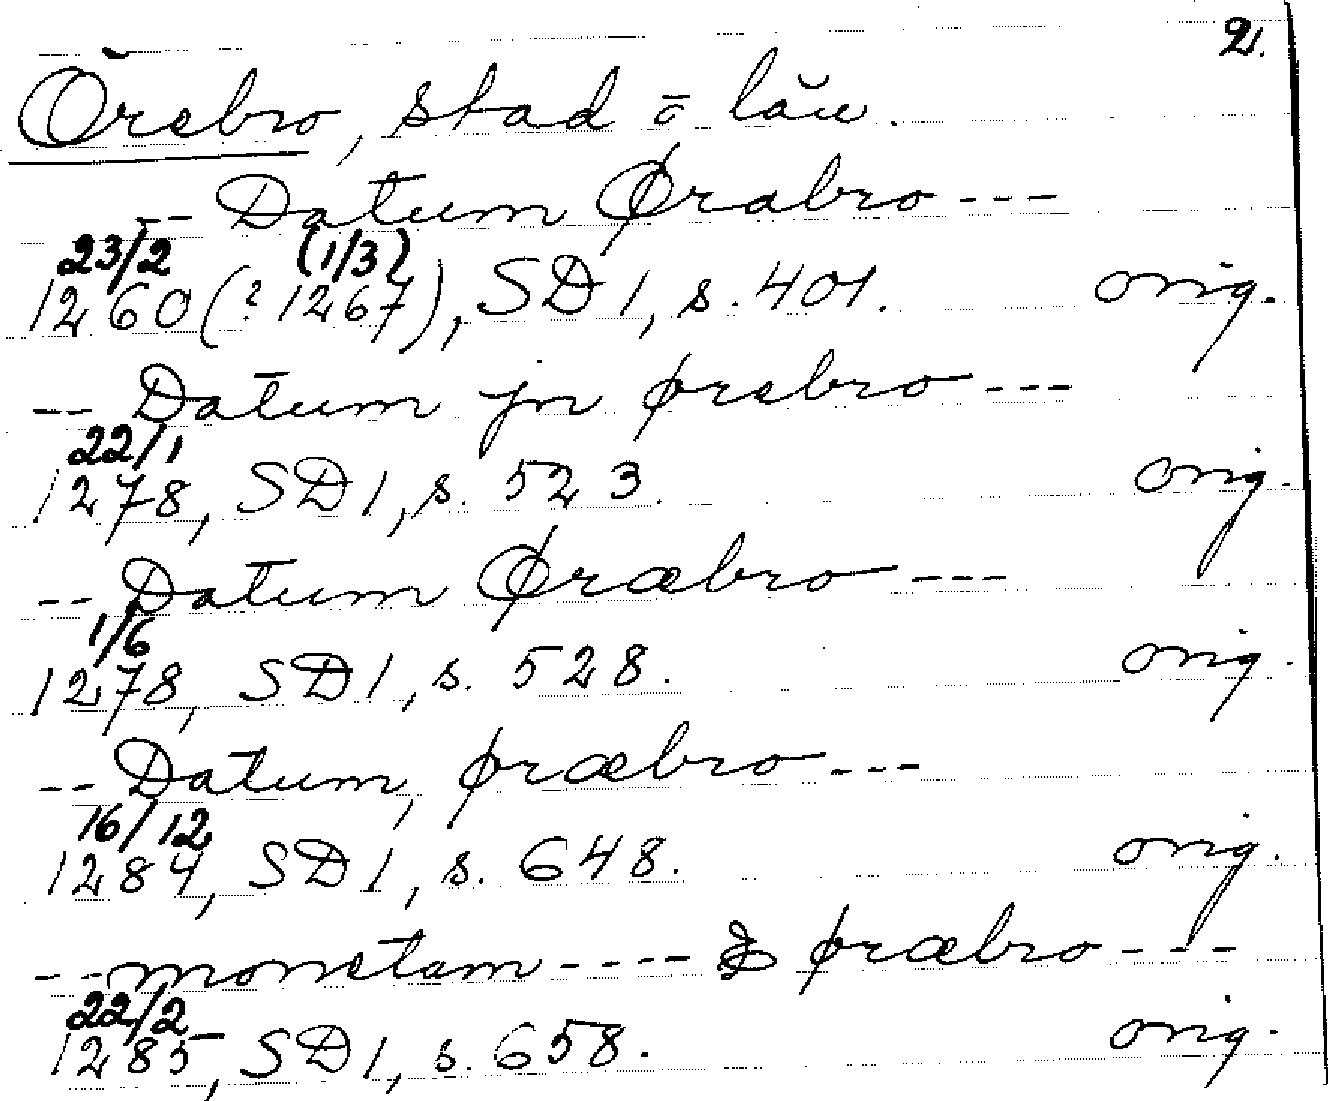 2.
Örebro, stad o län.
-- Datum Ørabro ---
23/2 (1/3)
1260 (? 1267), SD 1, s. 401. orig.
-- Datum jn ørebro ---
22/1
1278, SD 1, s. 523. orig.
-- Datum Øræbro ---
1/6
1278, SD 1, s. 528. orig.
-- Datum, øræbro ---
16/12
1284, SD 1, s. 648. orig.
-- monetam ---- & øræbro ---
22/2
1285, SD 1, s. 658. orig.